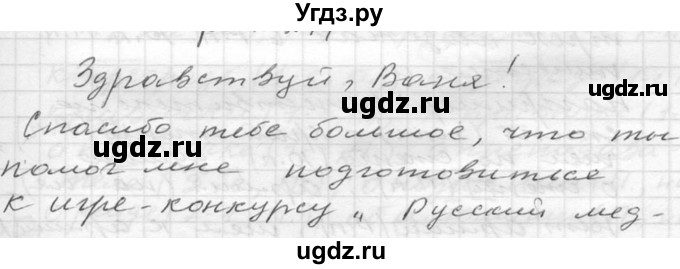 Угдз.ру
Здравствуй, Ваня!
ugdz.ru
ugdz.ru
Спасибо тебе большое, что ты
помог мне подготовиться
ugdz.ru
к игре-конкурсу „Русский мед-
ugdz.ru